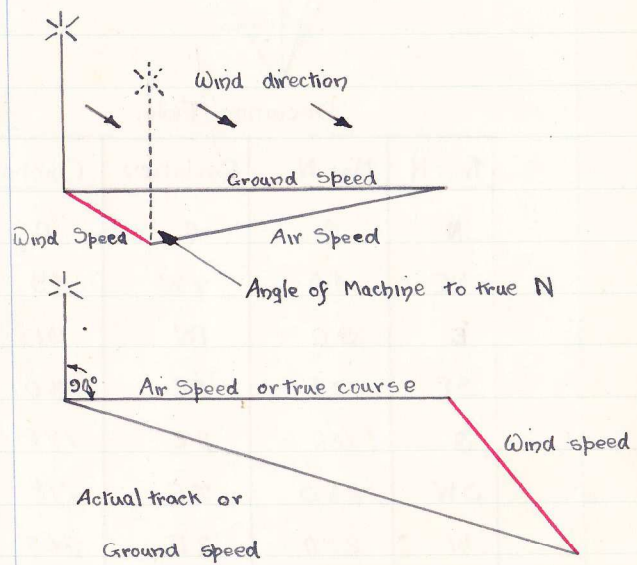 Wind direction
Ground Speed
Wind Speed
Air Speed
Angle of Machine to true N
90°
Air Speed or true course
Wind speed
Actual track or
Ground speed